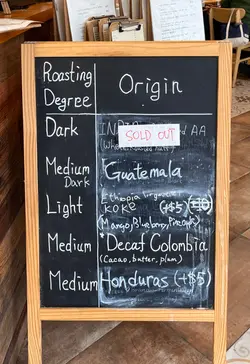 Roasting Degree Origin
Dark INDIA AA
SOLD OUT
Medium Dark Guatemala
Light Ethiopia
KOKE (+$5)
(Mango, Blueberry, Pineapple)
Medium Decaf Colombia
(Cacao, butter, plum)
Medium Honduras (+$5)